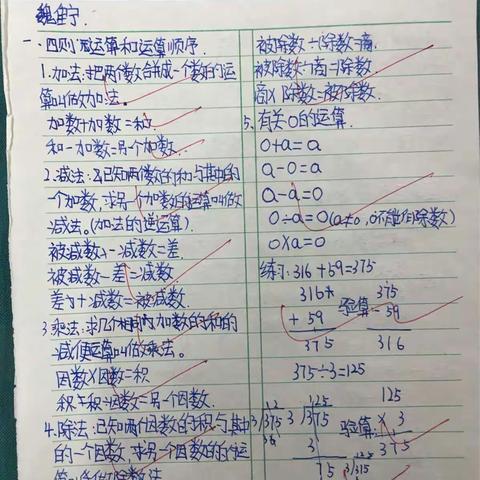 魏佳宁
一、四则运算和运算顺序.
1.加法:把两个数合并成一个数的运
算叫做加法.
加数+加数=和
和-加数=另个加数.
2.减法:已知两个数的和与其中的
一个加数,求另一个加数的运算叫做
减法.(加法的逆运算).
被减数-减数=差.
被减数-差=减数
差+减数=被减数.
3.乘法:求几个相同加数的和的
简便运算叫做乘法。
因数×因数=积
积÷因数=另个因数.
4.除法:已知两个因数的积与其中
的一个因数,求另一个因数的运
算叫做除法
被除数÷除数=商.
被除数÷商=除数
商×除数=被除数.
5.有关0的运算.
0+a=a
a-0=a
a-a=0
0÷a=0(a≠0,0不能作除数)
0×a=0
练习:316+59=375
316 验算 375
+59 -59
375 316
375÷3=125
125 125
3/375 验算 × 3
3 375
75